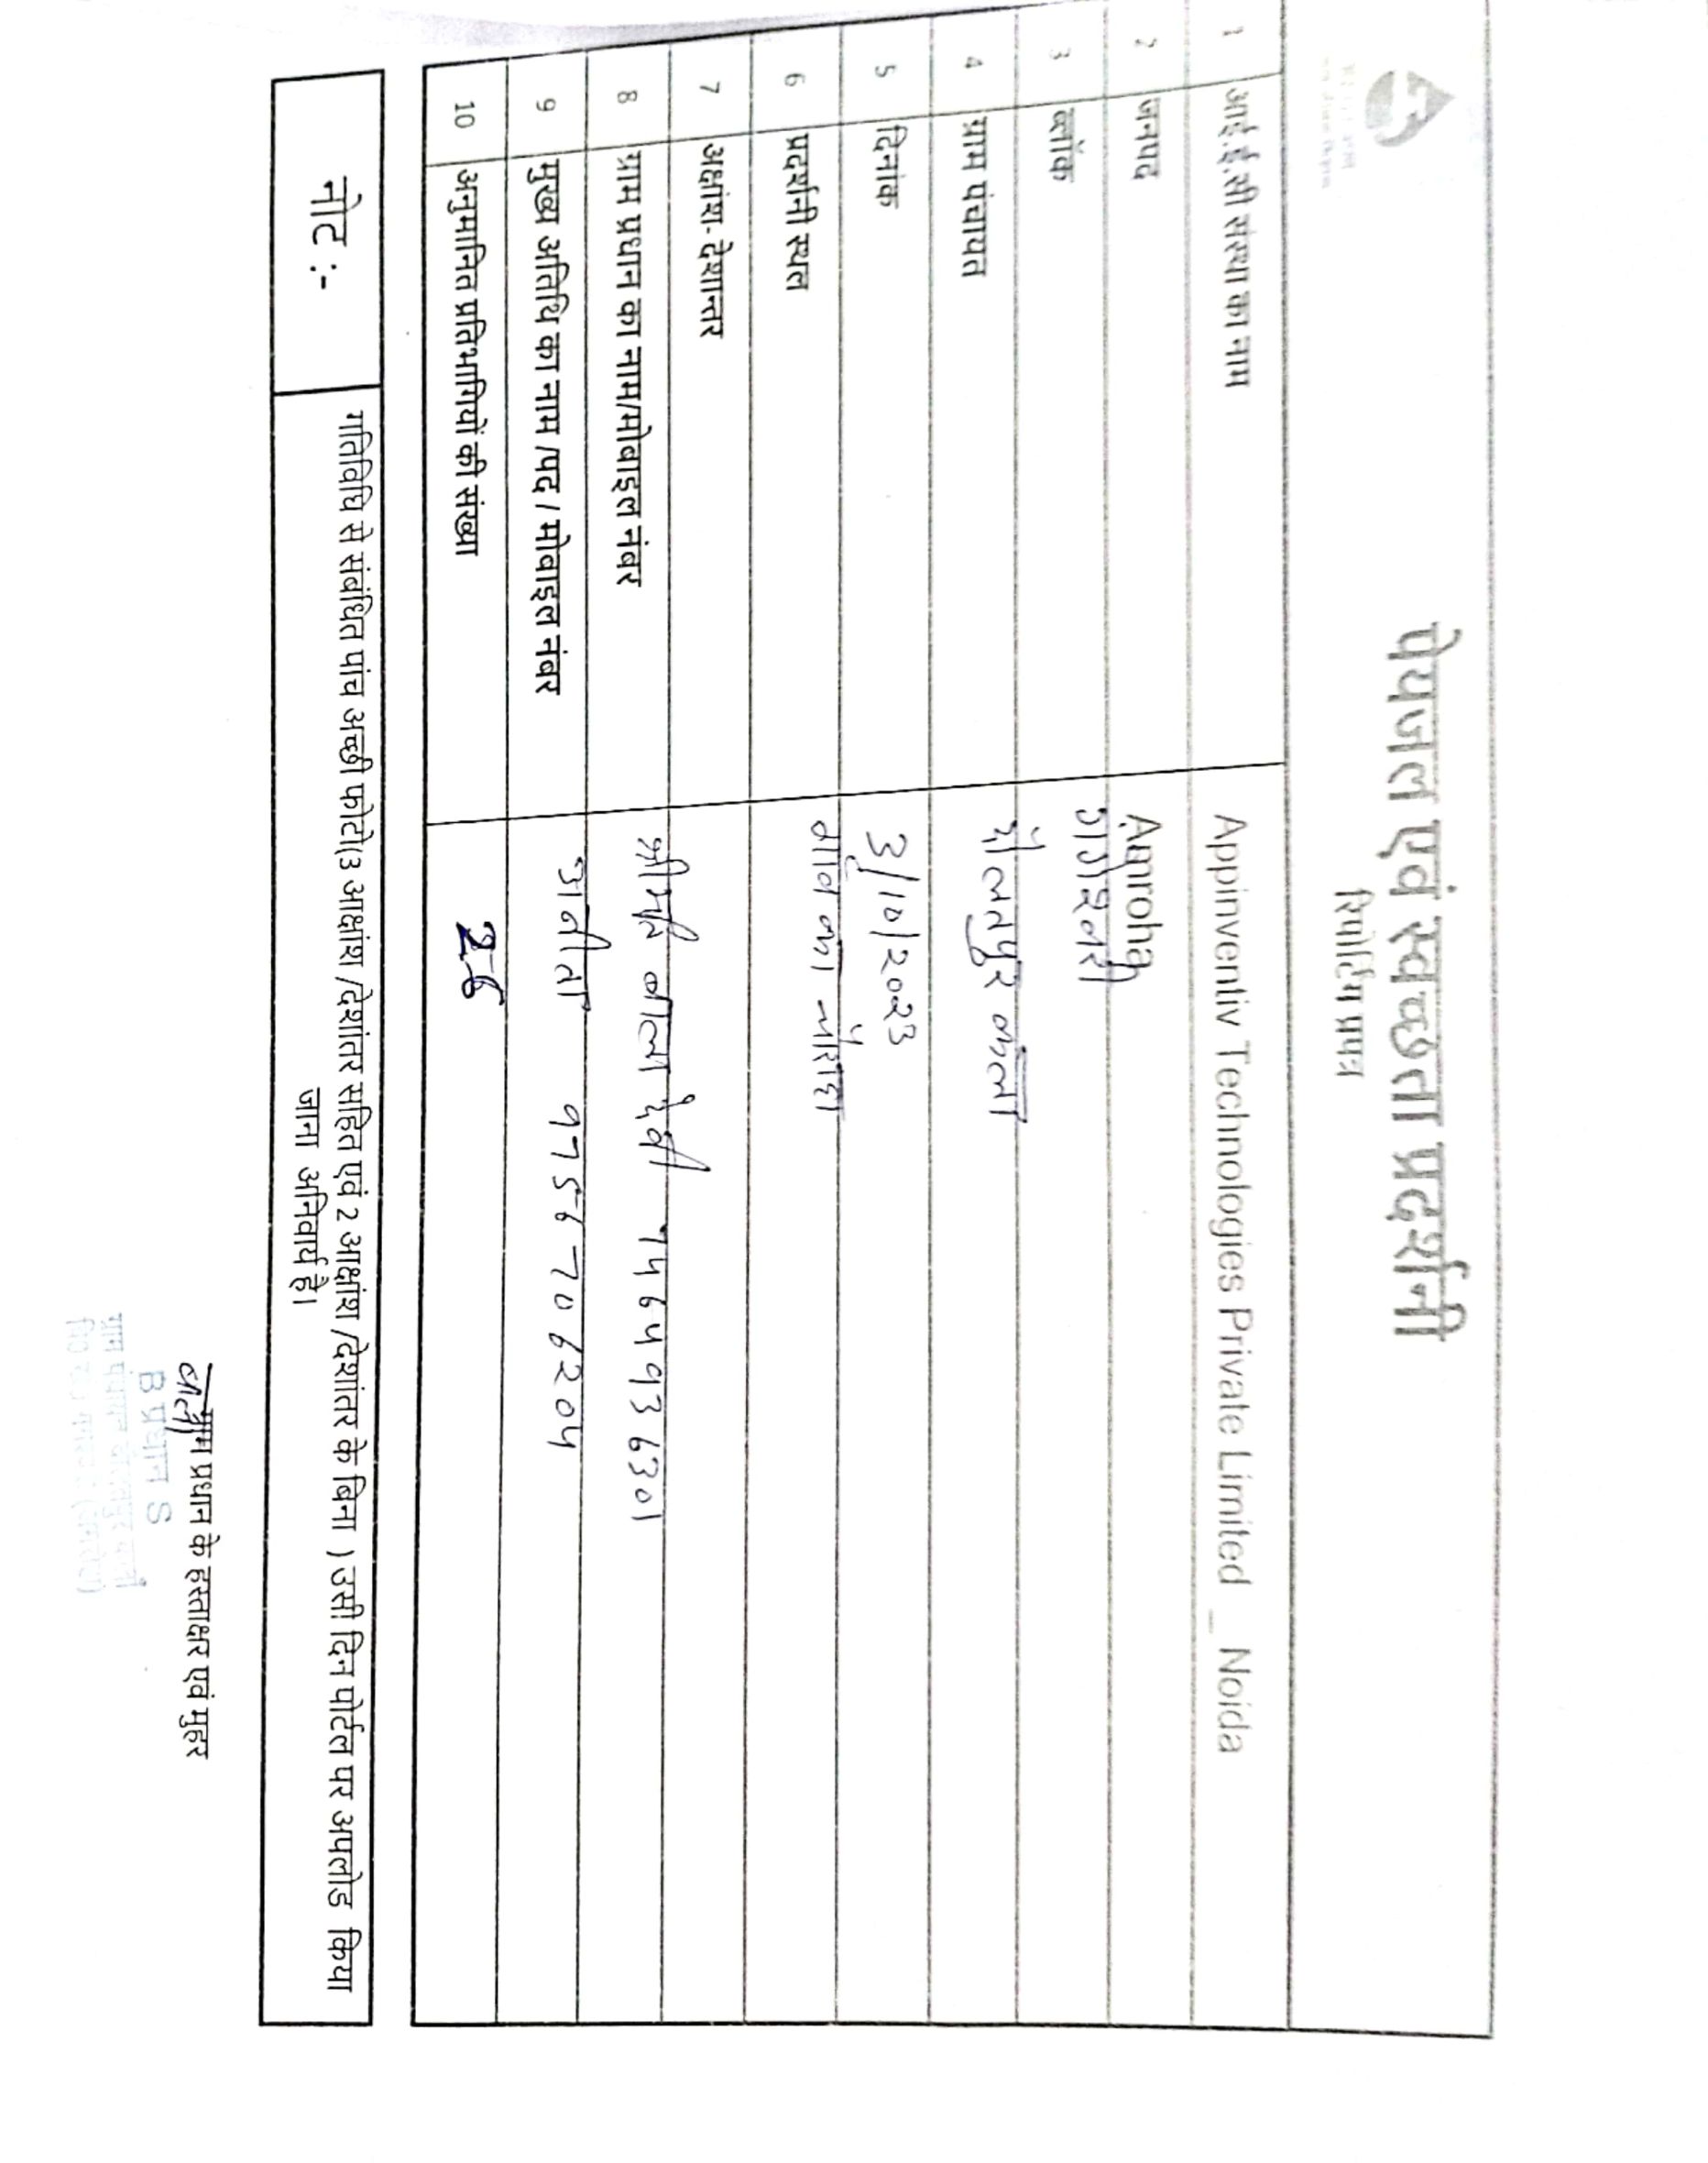 पेयजल एवं स्वच्छता प्रदर्शनी
रिपोर्टिंग प्रपत्र
1 आई.ई.सी संस्था का नाम Appinventiv Technologies Private Limited _ Noida
2 जनपद Amroha
3 ब्लॉक गंगेश्वरी
4 ग्राम पंचायत दौलतपुर कलां
5 दिनांक 3/10/2023
6 प्रदर्शनी स्थल गांव का चौराहा
7 अक्षांश- देशान्तर
8 ग्राम प्रधान का नाम/मोबाइल नंबर श्रीमति देवी
9 मुख्य अतिथि का नाम /पद / मोबाइल नंबर अनीता 9756706204
10 अनुमानित प्रतिभागियों की संख्या 26
नोट :- गतिविधि से संबंधित पांच अच्छी फोटो(3 आक्षांश /देशांतर सहित एवं 2 आक्षांश /देशांतर के बिना ) उसी दिन पोर्टल पर अपलोड किया
जाना अनिवार्य है।
ग्राम प्रधान के हस्ताक्षर एवं मुहर
B प्रधान S
ग्राम पंचायत